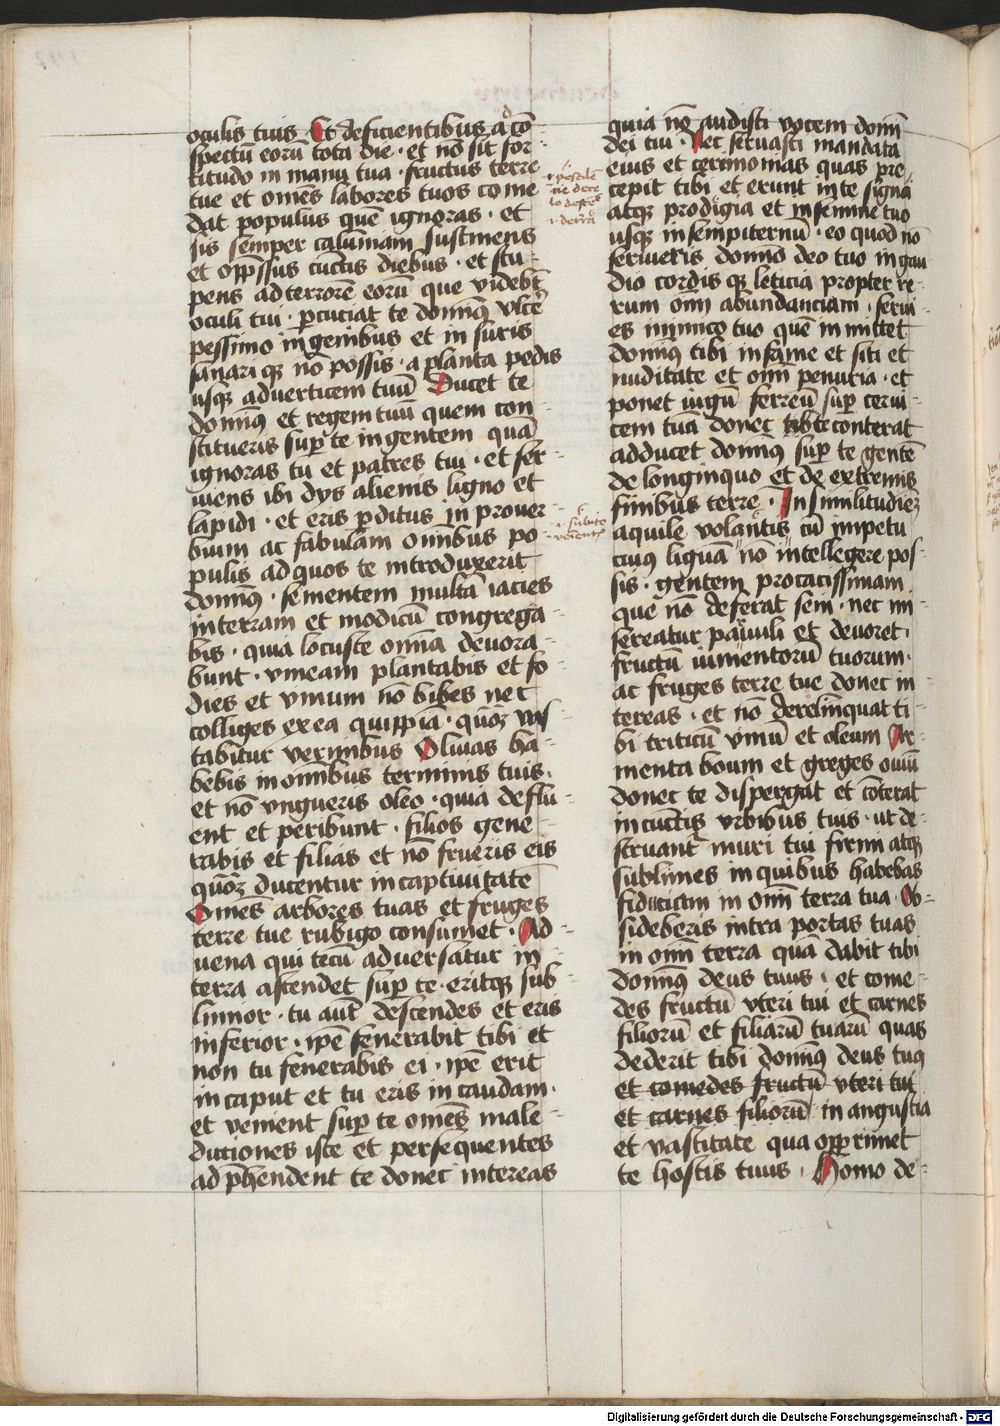 oculis tuis Et deficientibus ad cō
spectū eorū tota die · et nō sit for
titudo in manu tua · fructus terre
tue et omēs labores tuos come
dat populus quē ignoras · et
sis semper calumniam sustinens
et opp̄ssus cūctis diebus · et stu
pens ad terrorē eorū que videbūt
oculi tui · percuciat te domin9 vlcē
pessimo in genibus et in suris
sanari q3 nō possis · a planta pedis
usq3 ad verticem tuū Ducet te
domin9 et regem tuū quem con
stitueris sup te in gentem quā
ignoras tu et patres tui · et ser
uiens ibi dys alienis ligno et
lapidi · et eris p̄ditus in prouer
bium ac fabulam omnibus po
pulis ad quos te introduxerit
domin9 · sementem multā iacies
in terram et modicū congrega
bis · quia locuste omnia deuora
bunt · vineam plantabis et fo
dies et vinum nō bibes nec
colliges ex ea quippiā · qm̄ vas
tabitur vermibus Oliuas ha
bebis in omnibus terminis tuis ·
et nō vngueris oleo · quia deflu
ent et peribunt · filios gene
rabis et filias et nō frueris eis
qm̄ ducentur in captiuitatē
Omēs arbores tuas et fruges
terre tue rubigo consumet · Ad
uena qui tecū aduersatur in
terra ascendet sup te · eritq3 sub
limior · tu aut̄ descendes et eris
inferior · ip̄e fenerabit tibi et
non tu fenerabis ei · ip̄e erit
in caput et tu eris in caudam ·
et venient sup te omēs male
dictiones iste et persequentes
ad p̄hendent te donec intereas
i subito
quia nō audisti vocem domī
dei tui · Nec seruasti mandata
eius et cerimonias quas pre
cepit tibi et erunt in te signa
atq3 prodigia et in semine tuo
usq3 in sempiternū · eo quod nō
seruieris domino deo tuo in gau
dio cordis q3 leticia propter re
rum omī abundanciam · serui
es inimico tuo quē inmittet
domin9 tibi in fame et siti et
nuditate et omī penuria · et
ponet iugū ferreū sup cerui
cem tuā donec te conterat
adducet domin9 sup te gentē
de longinquo et de extremis
finibus terre · In similitudinē
aquile volantis cū impetu
cuius liguā nō intellegere pos
sis · gentem procacissimam
que nō deferat seni · nec mi
sereatur paruuli et deuoret ·
fructū iumentorū tuorum ·
ac fruges terre tue donec in
tereas · et nō derelinquat ti
bi triticū vinū et oleum Ar
menta boum et greges ouiū
donec te dispergat et cōterat
in cūctis vrbibus tuis · ut de
struant̄ muri tui firmi atq3
sublimes in quibus habebas
fiduciam in omī terra tua · Ob
sideberis intra portas tuas
in omī terra quā dabit tibi
domin9 deus tuus · et come
des fructū vteri tui et carnes
filiorū et filiarū tuarū quas
dederit tibi domin9 deus tuus
et comedes fructū vteri tui
et carnes filiorū in angustia
et vastitate qua opp̄rimet
te hostis tuus · Homo de
Digitalisierung gefördert durch die Deutsche Forschungsgemeinschaft - DFG